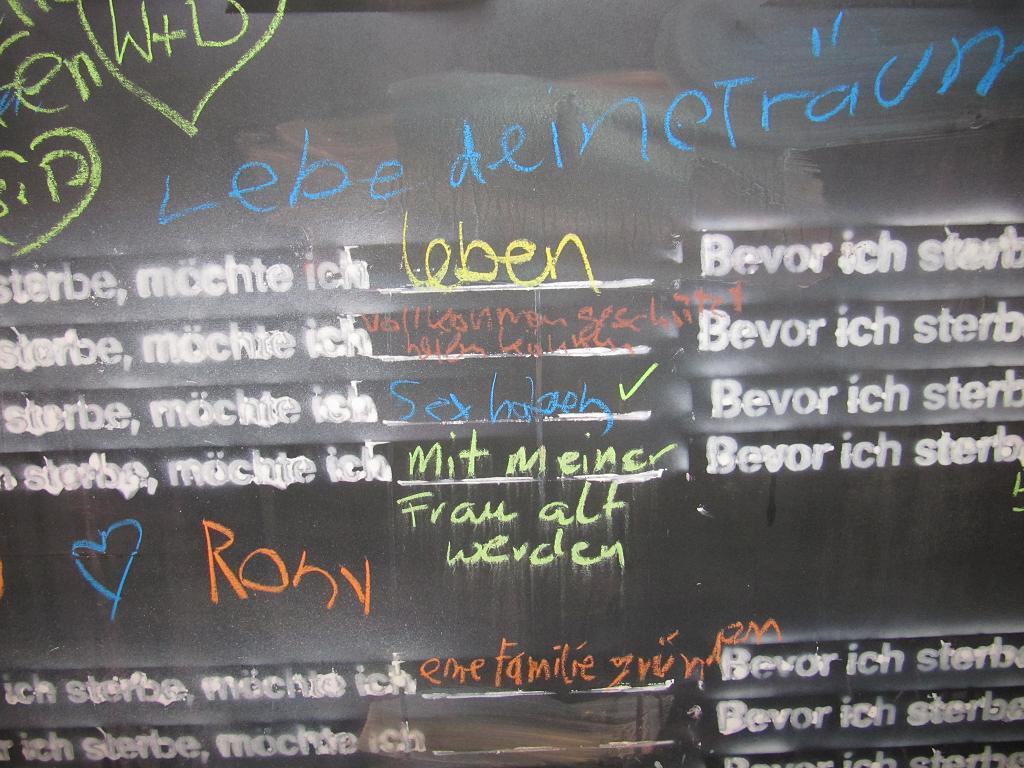 W+D
en
Lebe deine Träum
sterbe, möchte ich leben Bevor ich sterb
sterbe, möchte ich vollkommen geschützt Bevor ich sterb
sterbe, möchte ich Sex haben ✓ Bevor ich sterb
sterbe, möchte ich Mit meiner Bevor ich sterb
Frau alt
werden
Rony
ich sterbe, möchte ich eine Familie gründen Bevor ich sterbe
r ich sterbe, möchte ich Bevor ich sterbe
Bevor ich sterbe